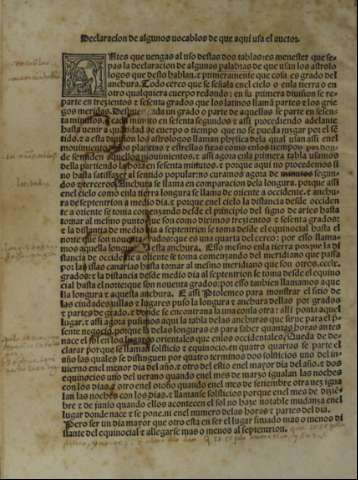 Declaracion de algunos vocablos de que aqui usa el auctor.
Antes que vengas al uso destas dos tablas: es menester que se
pas la declaracion de algunas palabras de que usan los astrolo
logos que desto hablan. E primeramente que cosa es grado del
anchura. Todo cerco que se señala en el cielo o enla tierra o en
otro qualquiera cuerpo redondo: en su primera division se re
parte en trezientos e sesenta grados que los latinos llamã partes e los grie
gos merides. Despues cada un grado o parte de aquellas se parte en sesen
ta minutos. E cada minuto en sesenta segundos e assi procediendo adelante
hasta venir a cantidad de cuerpo o tiempo que no se pueda juzgar por el sẽ
tido. e a esta division los astrologos llaman phisica dela qual usan assi enel
movimiento planetas e estrellas fixas como enlos tiempos por
se destienden aquellos movimientos. e assi agora enla primera tabla usamos
della partiendo la hora en sesenta minutos. e porque aqui no procedemos si
no hasta satisfazer al sentido popular: no curamos agora de segun
dos o terceros. Anchura se llama en comparacion dela longura. porque assi
enel cielo como enla tierra longura se llama de oriente a occidente. e anchu
ra de septentrion a medio dia. e porque enel cielo la distancia desde occiden
te a oriente se toma començando desde el principio del signo de aries hasta
tornar al mesmo punto que son como diximos trezientos e sesenta grados:
e la distancia de medio dia a septentrion se toma desde el equinocial hasta el
norte que son noventa grados: que es una quarta del cerco: por esso llama-
mos aquella longura e esta anchura. Esso mesmo enla tierra porque la di
stancia de occidente a oriente se toma començando del meridiano que passa
por las islas canarias hasta tornar al mesmo meridiano que son otros. ccclx.
grados: e la distancia desde medio dia al septentrion se toma desde el equino
cial hasta el norte que son noventa grados: por esso tambien llamamos aque
lla longura e aquesta anchura. E assi Ptolemeo para monstrar el sitio de
las ciudades villas e lugares puso la longura e anchura dellas por grados
e partes de grado. e donde se encontrava la una conla otra: alli ponia aquel
lugar. e assi agora pusimos aqui la tabla delas anchuras que sirve para el p̃
sente negocio. porque la delas longuras es para saber quantas horas antes
nace el sol en los lugares orientales que enlos occidentales. Queda de de-
clarar porque se llaman solsticio e equinocio. en quatro quartas se parte el
año las quales se distinguen por quatro terminos dos solsticios uno del in-
vierno enel menor dia del año. e otro del estio enel mayor dia del año. e dos
equinocios uno del verano quando enel mes de março igualan las noches
con los dias. e otro enel otoño quando enel mes de setiembre otra vez igua
lan las noches con los dias. e llamanse solsticios porque enel mes de dizie-
bre e de junio quando ellos acontecen el sol no haze notable mudança enel
lugar donde nace e se pone. ni enel numero delas horas e partes del dia.
Pero ser un dia mayor que otro esta en ser el lugar situado mas o menos di
stante del equinocial e allegarse mas o menos al septentrion.